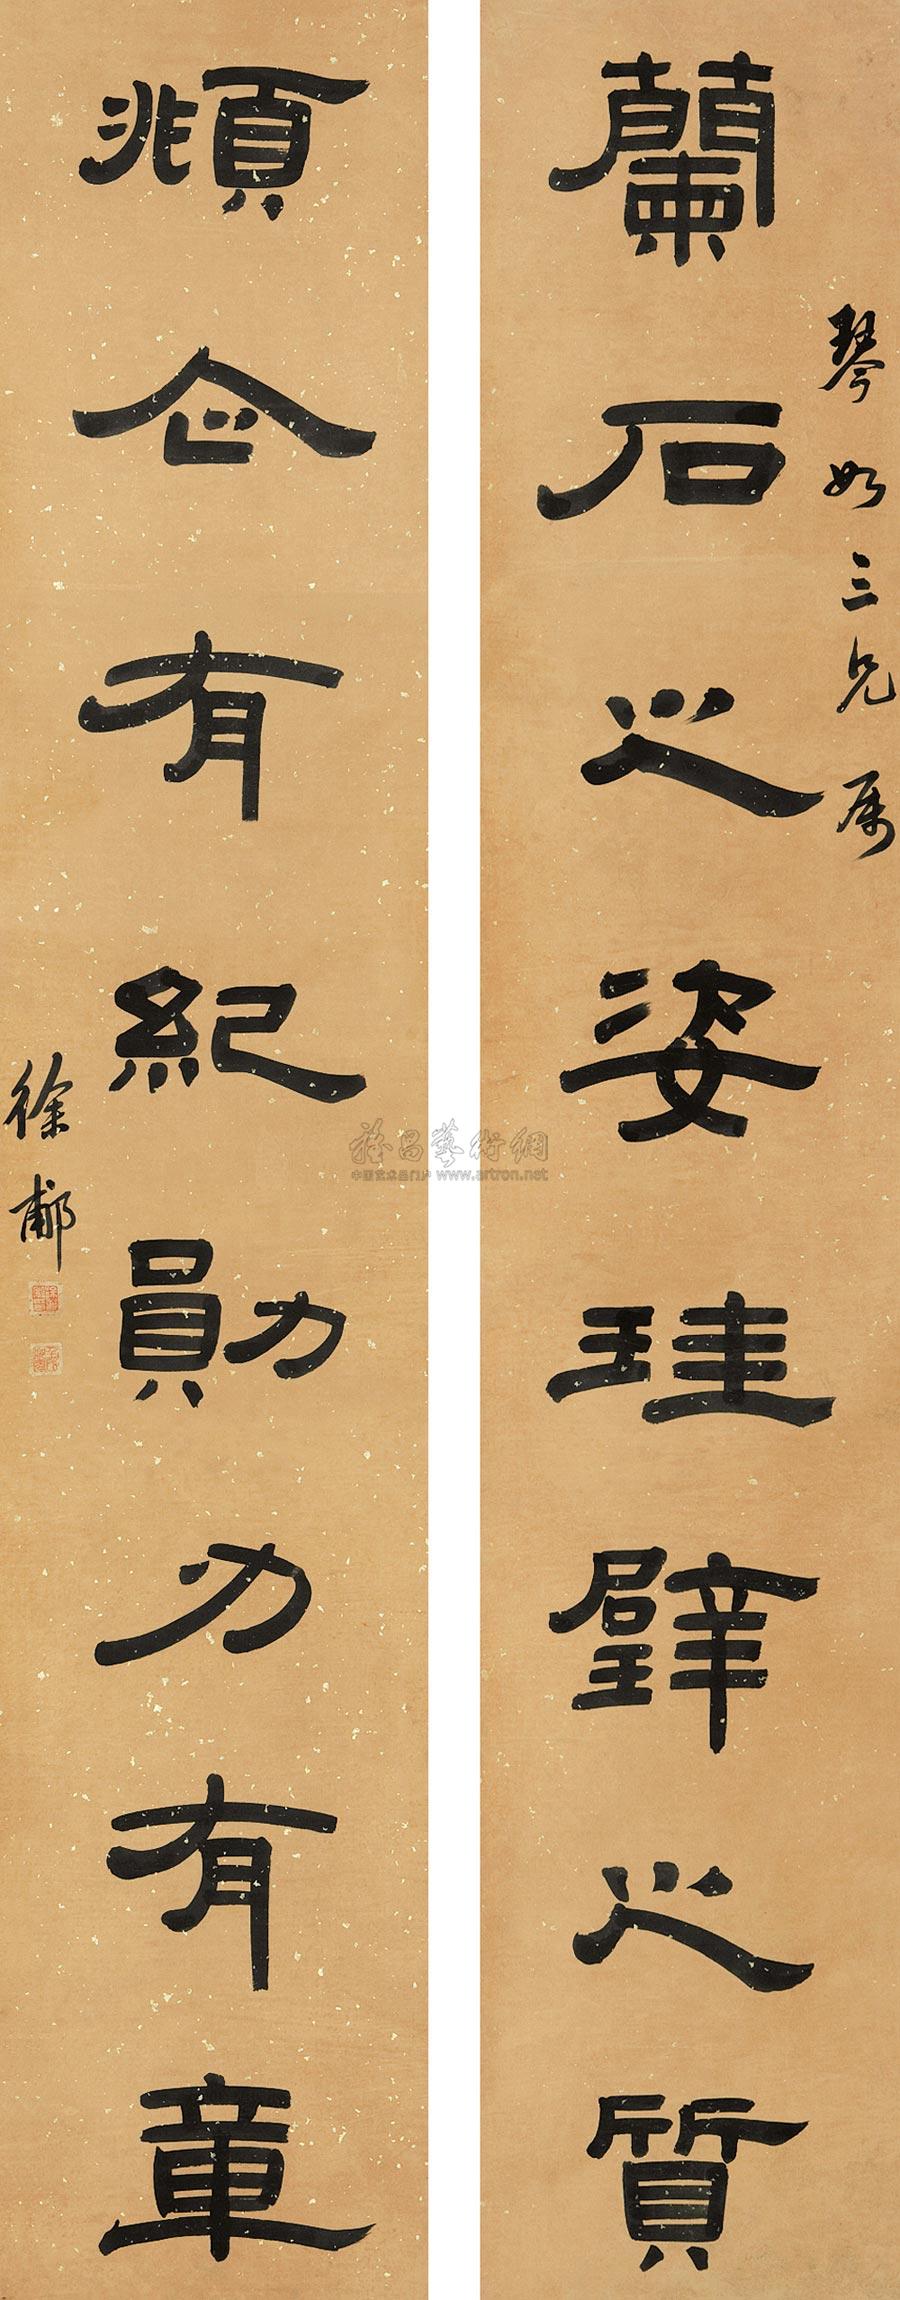 琴如三兄屬
蘭石之姿珪璧之質
頫企有紀勛力有章
徐郙
雅昌藝術網
中国艺术品门户 www.artron.net